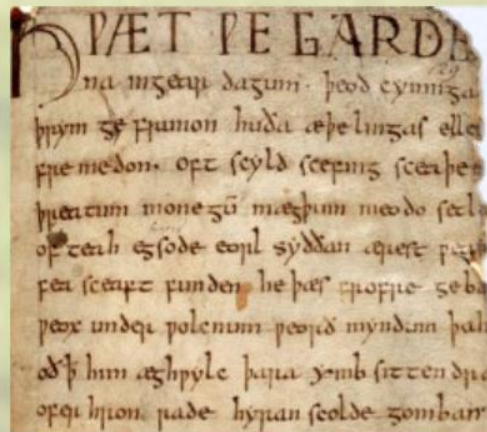 HǷÆT ǷE GARDE
na ingear dagum. þeod cyninga
þrym ge frunon huða æþelingas elle
fremedon. oft scyld scefing sceaþe
þreatum monegū mægþum meodo setla
of teah egsode eorl syððan ærest ƿea
fea sceaft funden he þæs frofre geba
ƿeox under ƿolcnum ƿeorð myndum þah
oð ꝥ him æghƿylc þara ymb sittendra
ofer hron rade hyran scolde gomban